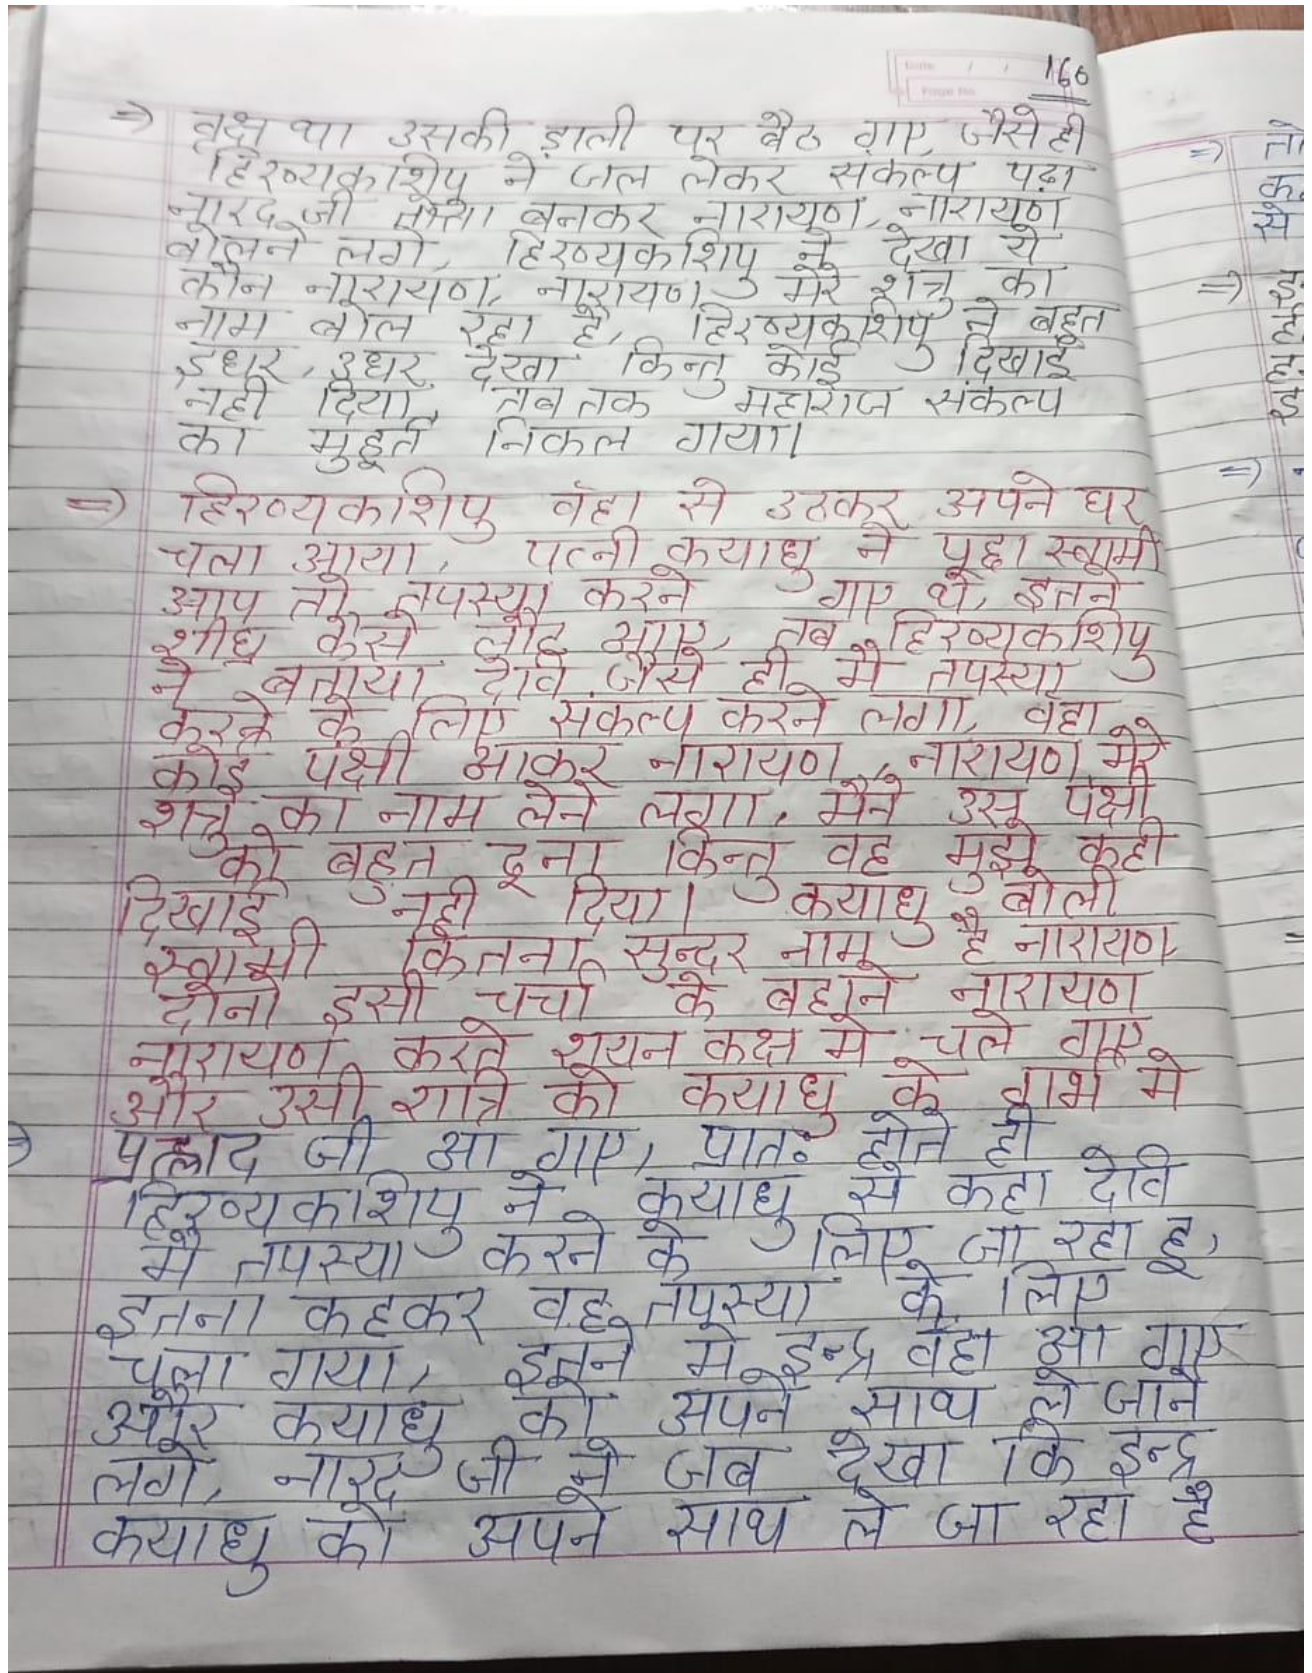 160
⇒ वृक्ष था उसकी डाली पर बैठ गए, जैसे ही
हिरण्यकशिपु ने जल लेकर संकल्प पढ़ा
नारद जी तोता बनकर नारायण, नारायण
बोलने लगे, हिरण्यकशिपु ने देखा ये
कौन नारायण, नारायण मेरे शत्रु का
नाम बोल रहा है, हिरण्यकशिपु ने बहुत
इधर, उधर देखा किन्तु कोई दिखाई
नही दिया, तब तक महाराज संकल्प
का मुहूर्त निकल गया।
⇒ हिरण्यकशिपु वँहा से उठकर अपने घर
चला आया, पत्नी कयाधु ने पूछा स्वामी
आप तो तपस्या करने गए थे, इतने
शीघ्र कैसे लौट आए, तब हिरण्यकशिपु
ने बताया देवि जैसे ही मै तपस्या
करने के लिए संकल्प करने लगा, वहा
कोई पक्षी आकर नारायण, नारायण मेरे
शत्रु का नाम लेने लगा, मैने उस पक्षी
को बहुत ढूना किन्तु वह मुझे कही
दिखाई नही दिया। कयाधु बोली
स्वामी कितना सुन्दर नाम है नारायण
दोनो इसी चर्चा के बहाने नारायण
नारायण करते शयन कक्ष मे चले गए
और उसी रात्रि को कयाधु के गर्भ मे
प्रह्लाद जी आ गए, प्रातः होते ही
हिरण्यकशिपु ने कयाधु से कहा देवि
मै तपस्या करने के लिए जा रहा हू,
इतना कहकर वह तपस्या के लिए
चला गया, इतने मे इन्द्र वँहा आ गए
और कयाधु को अपने साथ ले जाने
लगे, नारद जी ने जब देखा कि इन्द्र
कयाधु को अपने साथ ले जा रहा है